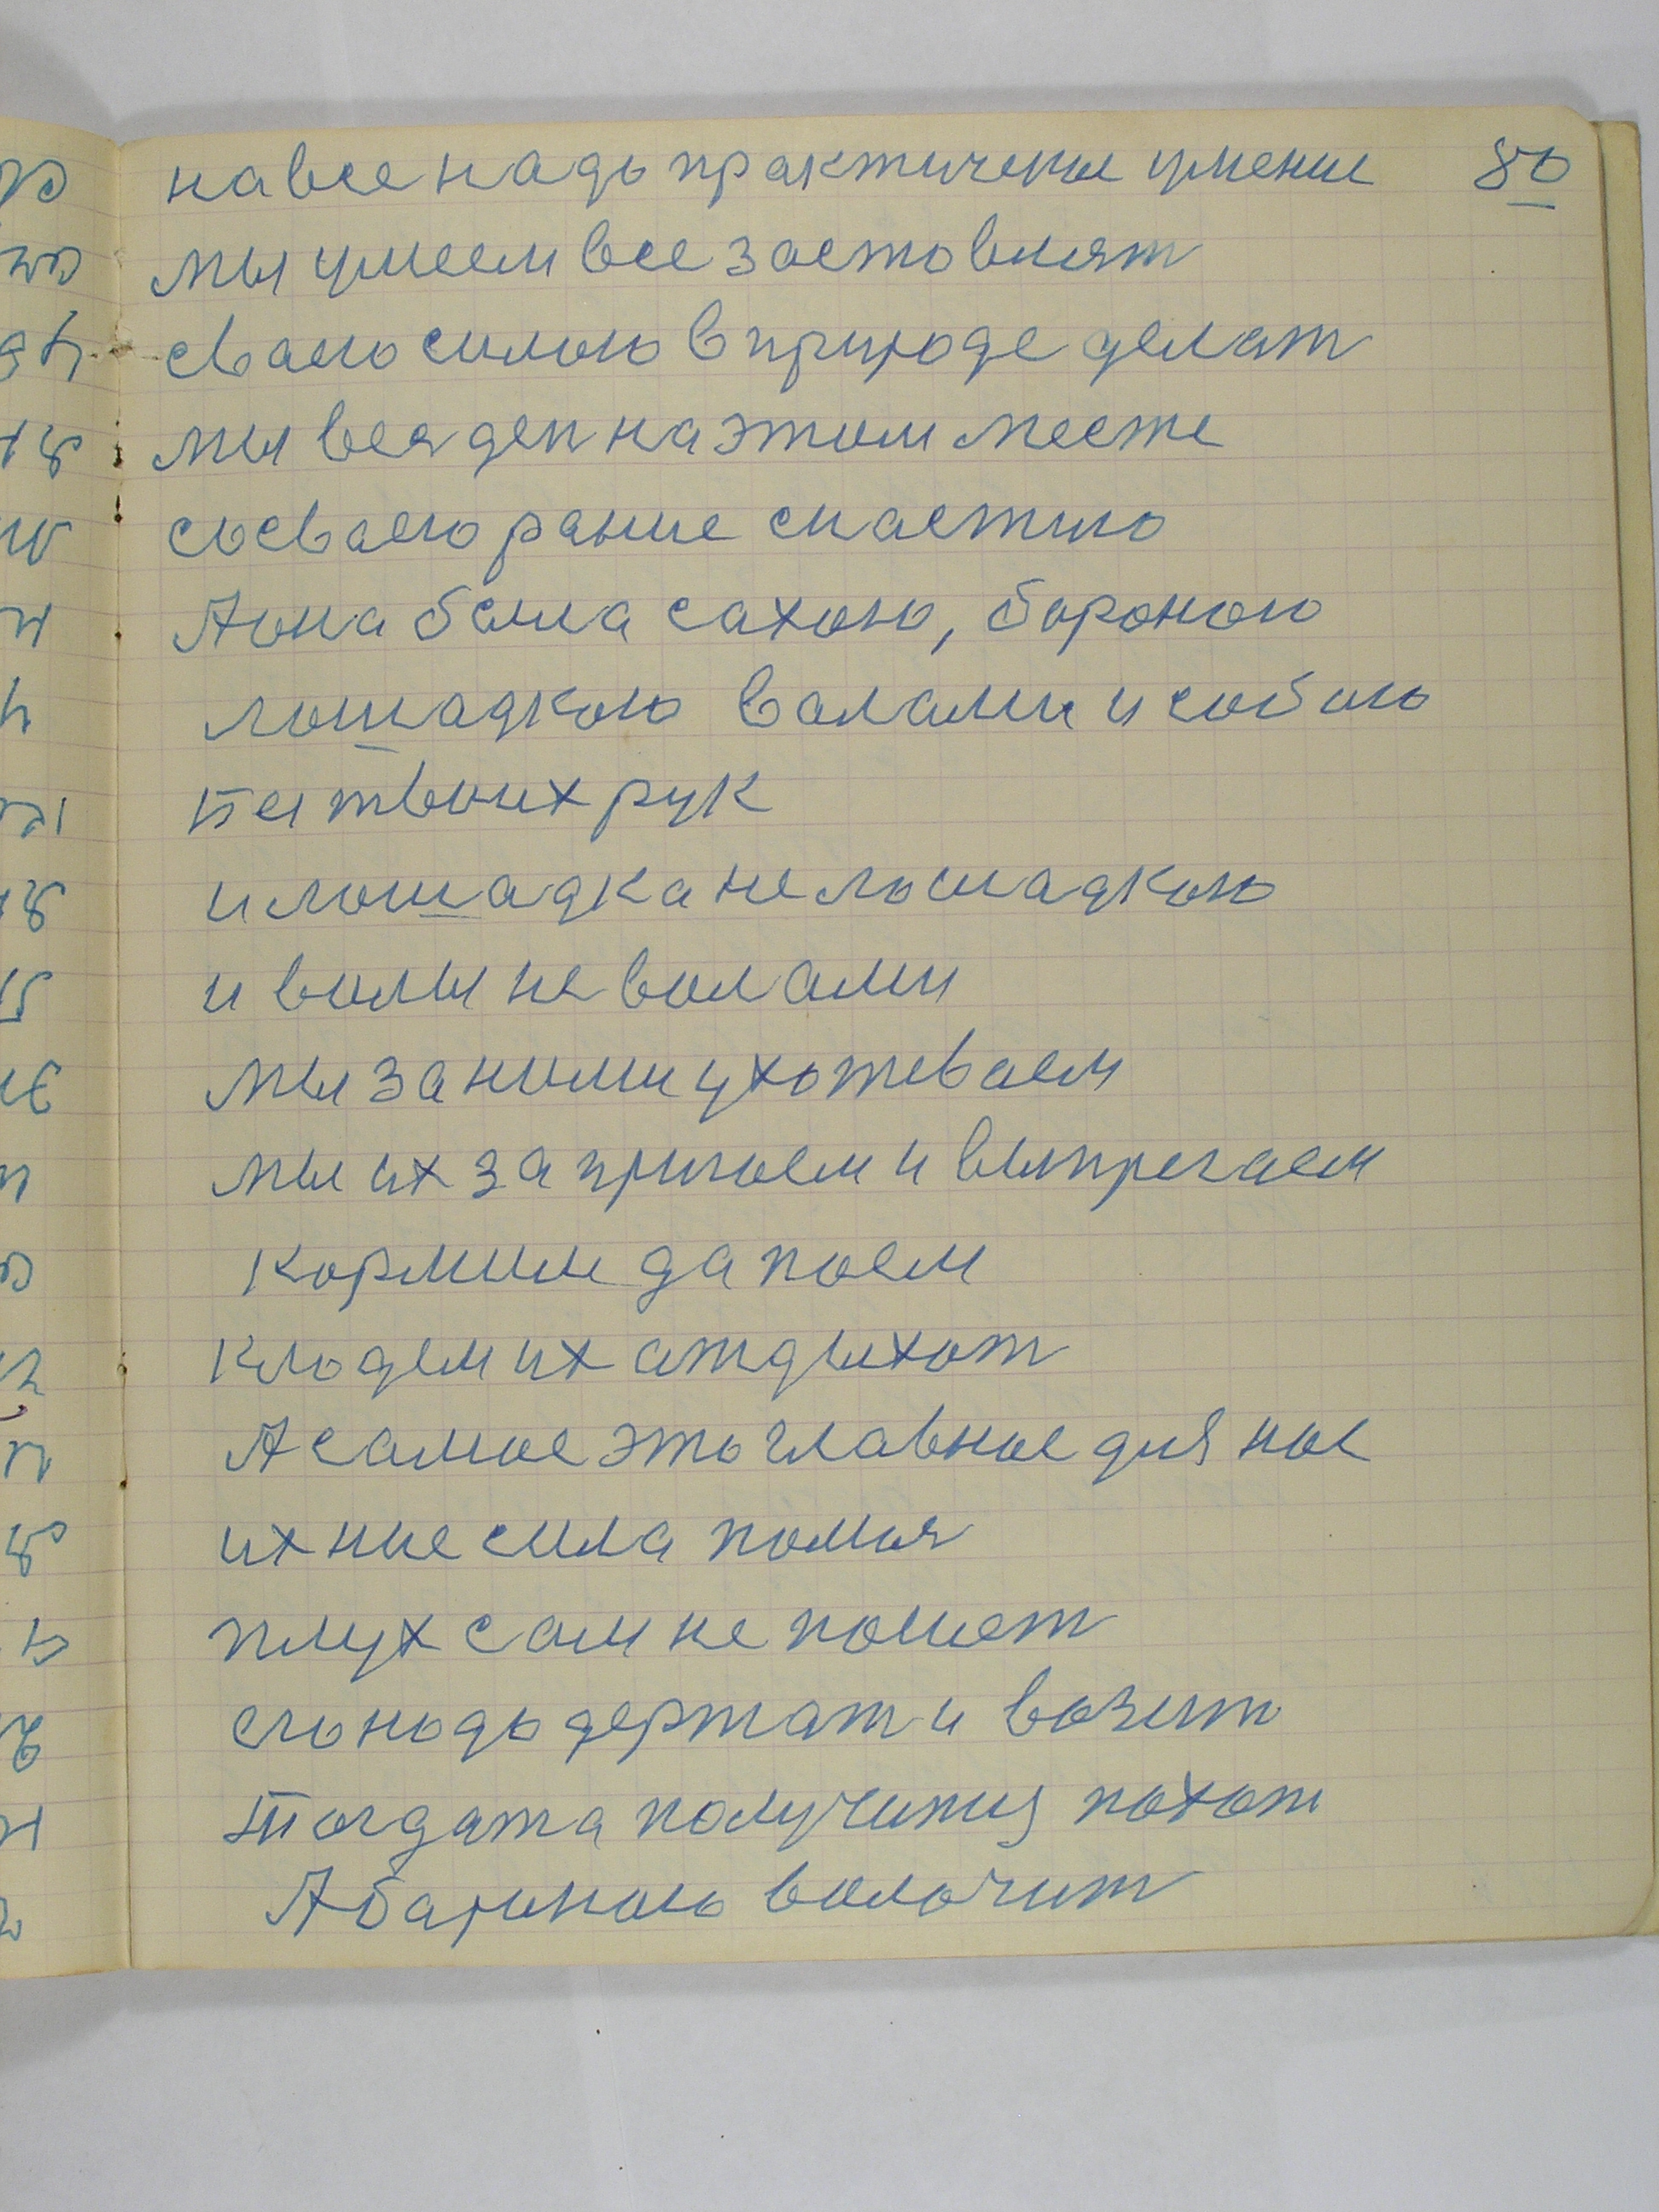 на все надо практичение умение 80
мы умеем все застовлят
сваею силою в природе делат
мы вся ден на этом месте
со сваею ранне снастию
А она была сахою, бороною
лошадкою валами и собою
без твоих рук
и лошадка не лошадкою
и волы не волами
мы за ними ухожеваем
мы их запригаем и выпрегаем
кормим да поем
клодем их атдыхат
А самое это главное для нас
ихние сила помоя
плух сам не пошет
его нодо держат и возит
тогдата получится похот
А бароною волочит